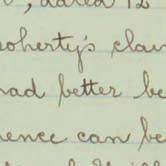 , dated 12
oherty's clai
had better be
ence can be